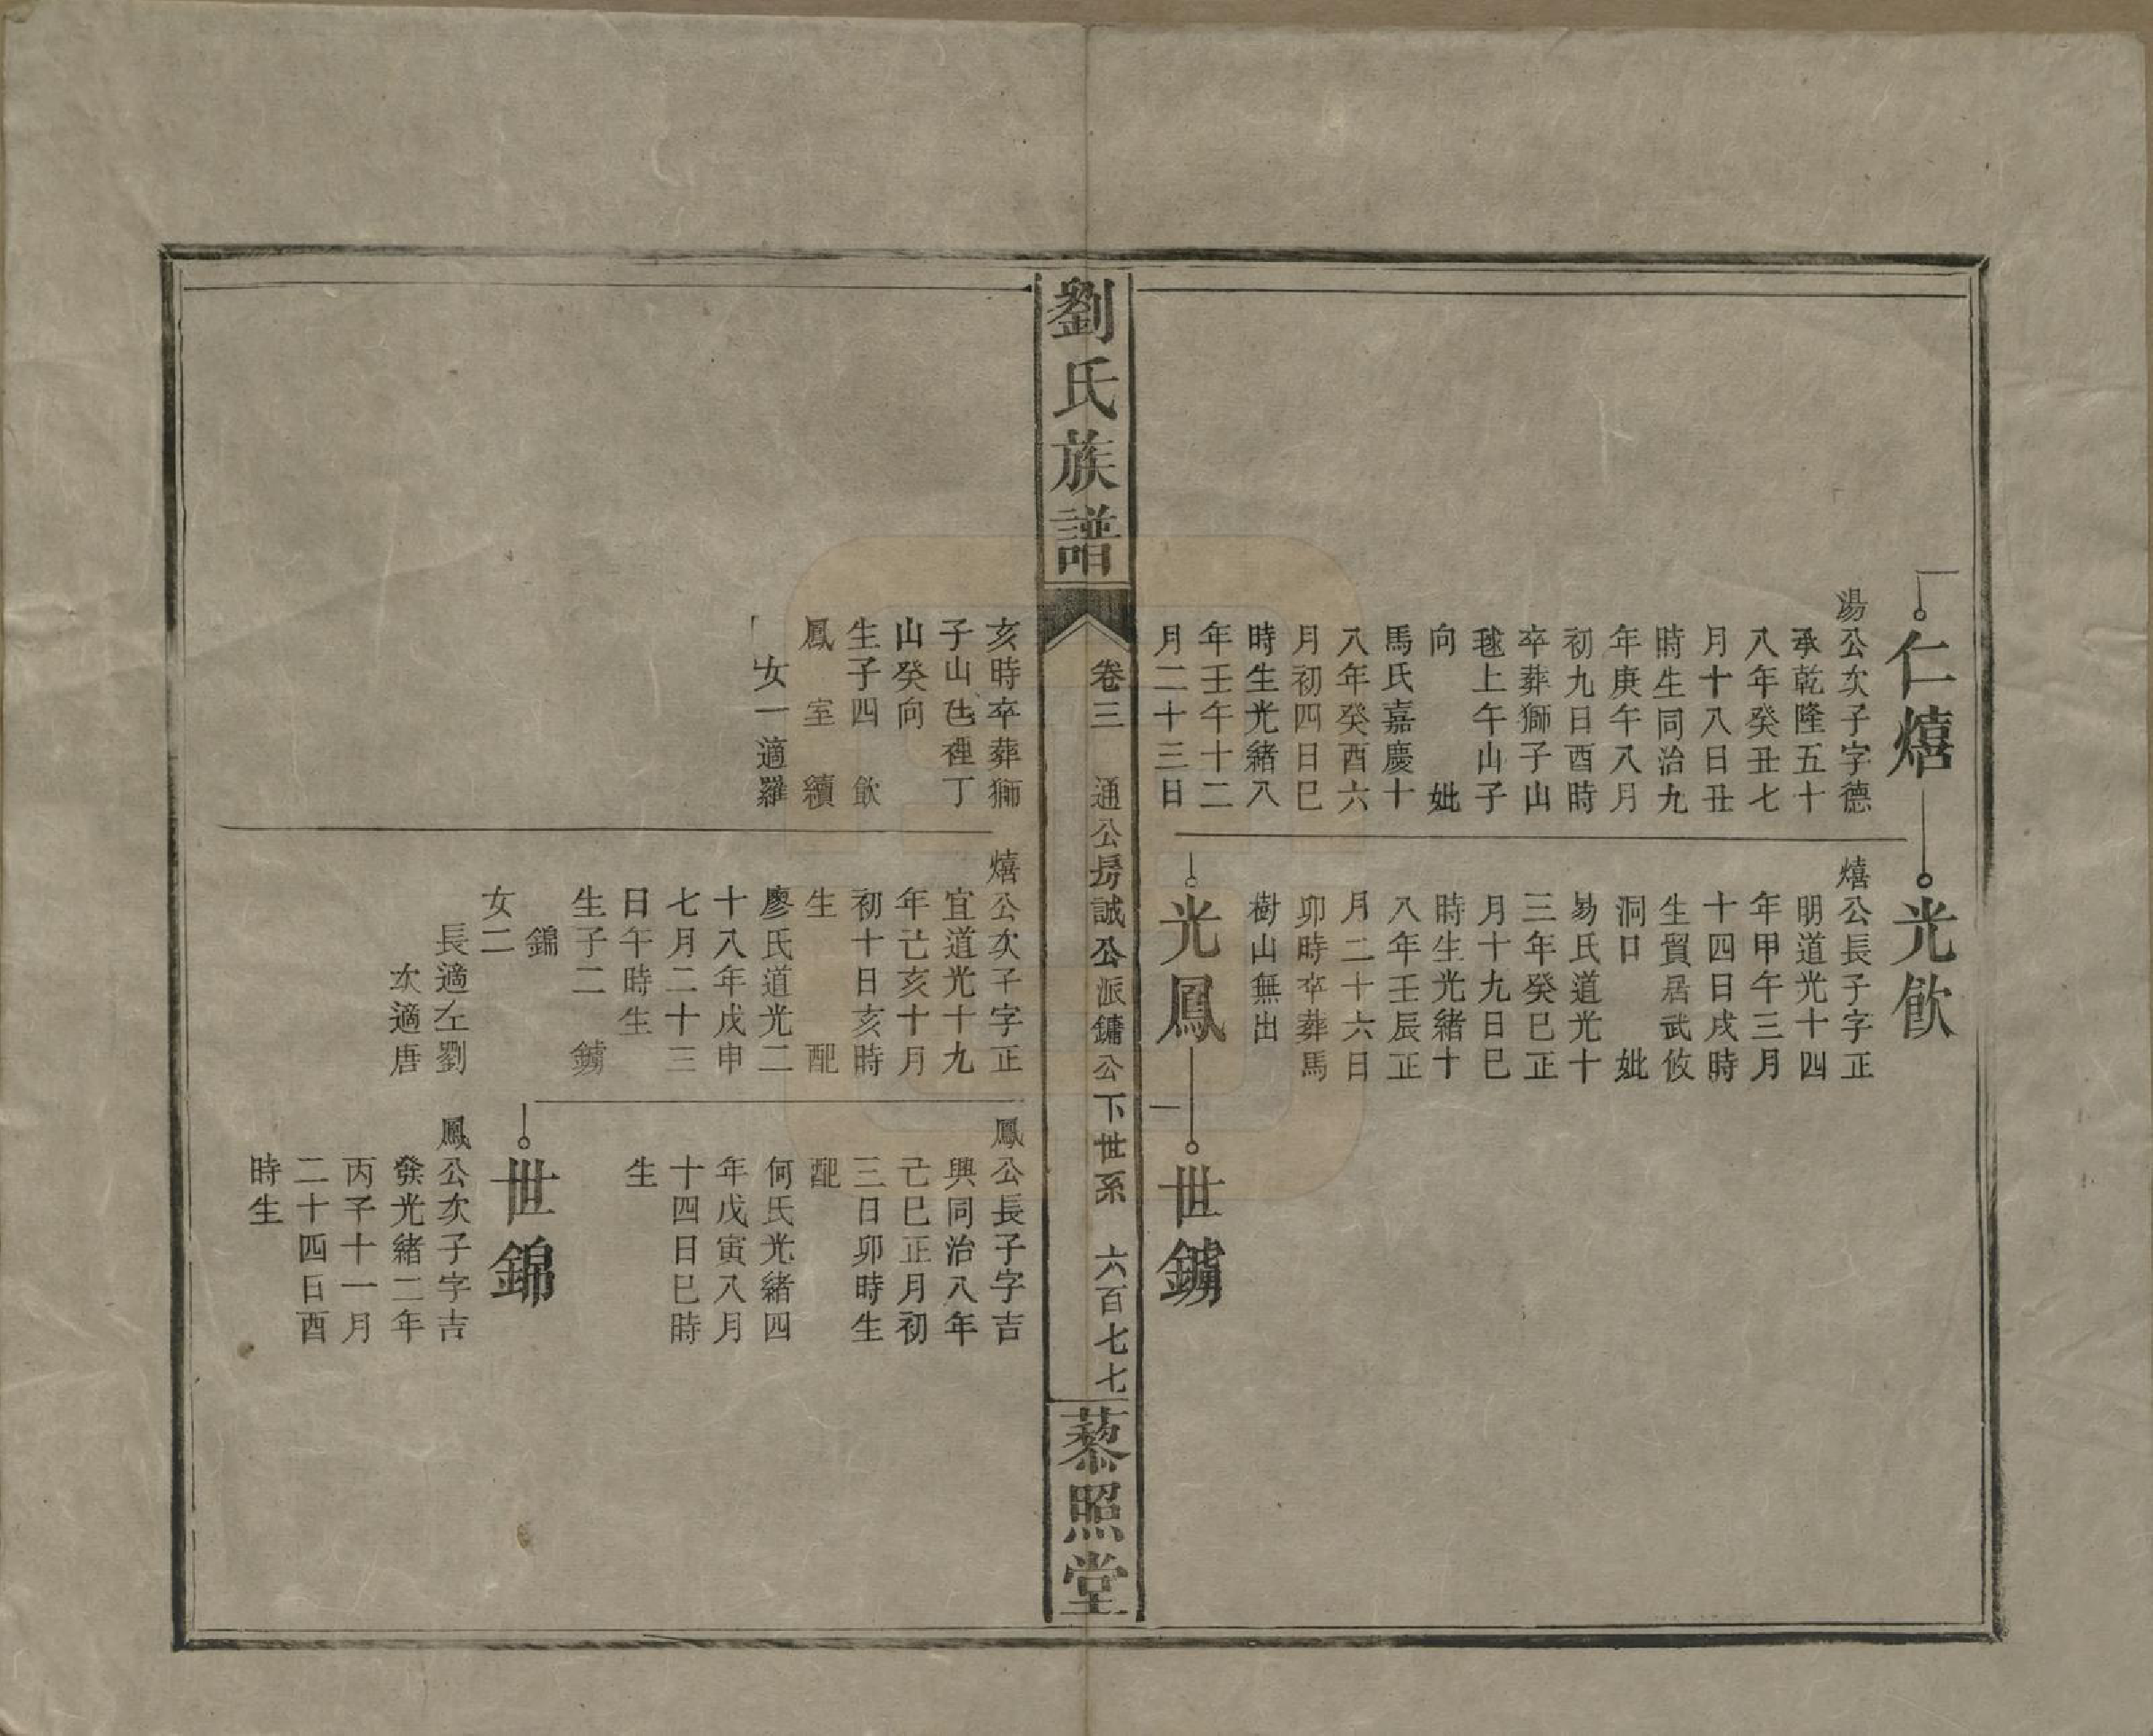 仁熺
湯公次子字德
承乾隆五十
八年癸丑七
月十八日丑
時生同治九
年庚午八月
初九日酉時
卒葬獅子山
毬上午山子
向 妣
馬氏嘉慶十
八年癸酉六
月初四日巳
時生光緒八
年壬午十二
月二十三日
光飮
熺公長子字正
明道光十四
年甲午三月
十四日戌時
生貿居武攸
洞口 妣
易氏道光十
三年癸巳正
月十九日巳
時生光緒十
八年壬辰正
月二十六日
卯時卒葬馬
樹山無出
光鳳
世鏽
劉氏族譜
卷三 通公房誠公派鏞公下世系 六百七七
藜照堂
亥時卒葬獅
子山包裡丁
山癸向
生子四 飮
鳳 室 續
女一適羅
熺公次子字正
宜道光十九
年己亥十月
初十日亥時
生 配
廖氏道光二
十八年戊申
七月二十三
日午時生
生子二 鏽
錦
女二
長適左劉
次適唐
鳳公長子字吉
興同治八年
己巳正月初
三日卯時生
配
何氏光緒四
年戊寅八月
十四日巳時
生
世錦
鳳公次子字吉
發光緒二年
丙子十一月
二十四日酉
時生